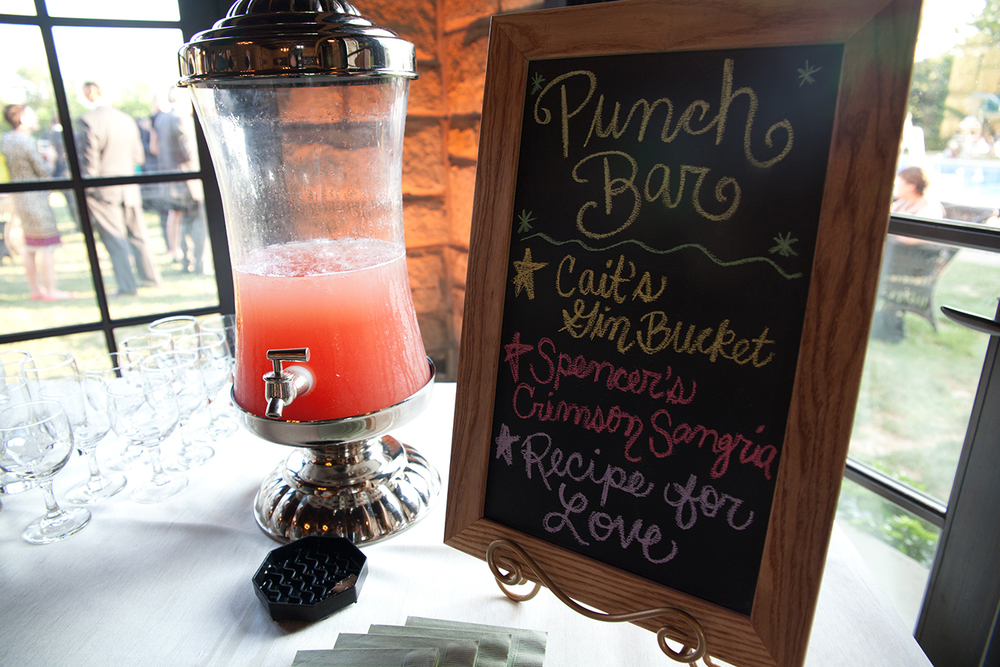 Punch
Bar
Cait's
Gin Bucket
Spencer's
Crimson Sangria
Recipe for
Love